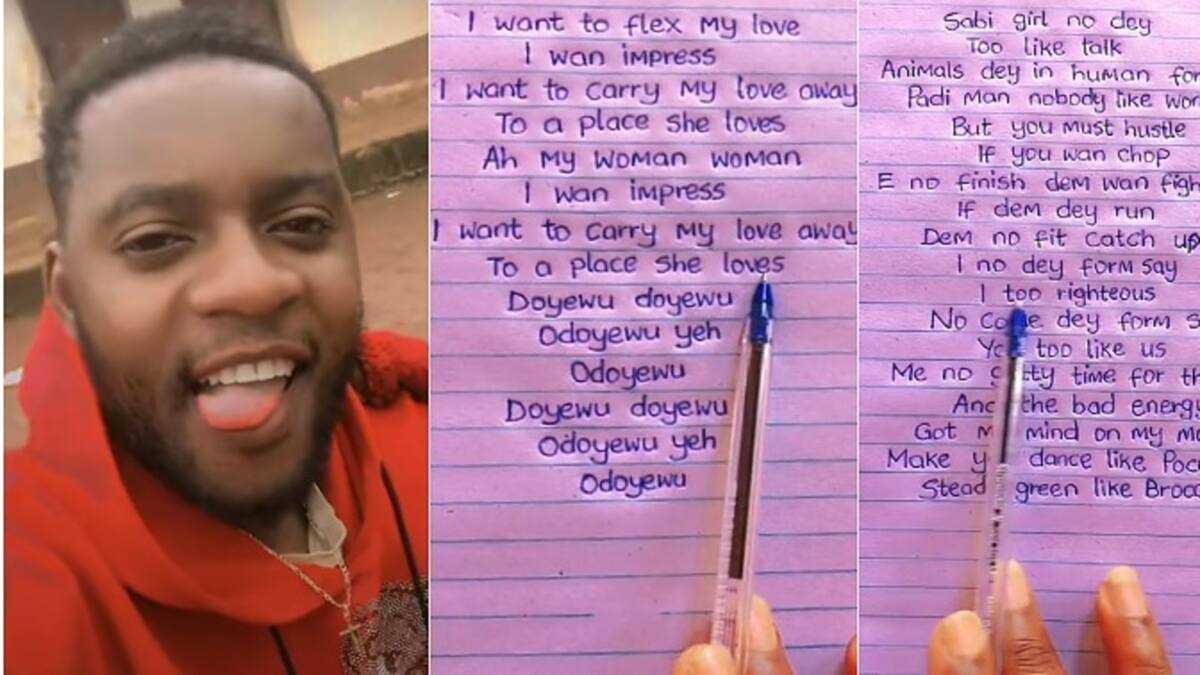 I want to flex My love
I wan impress
I want to carry My love away
To a place She loves
Ah My woman woman
I wan impress
I want to carry My love away
To a place She loves
Doyewu doyewu
Odoyewu yeh
Odoyewu
Doyewu doyewu
Odoyewu yeh
Odoyewu
Sabi girl no dey
Too like talk
Animals dey in human
Padi Man nobody like
But you Must hustle
If you wan chop
E no finish dem wan
If dem dey run
Dem no fit catch up
I no dey form Say
I too righteous
No dey form
too like us
Me no time for
the bad
Got mind on my
Make dance like
green like